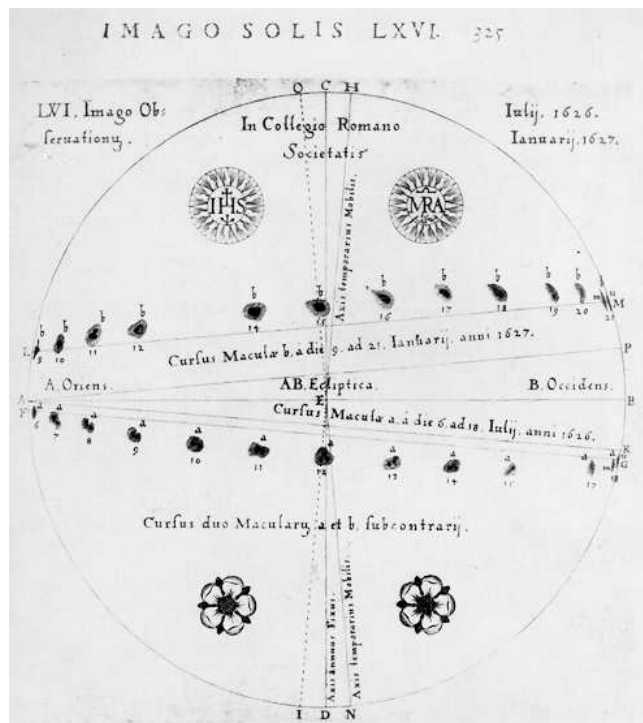 IMAGO SOLIS LXVI. 325
O C H
LVI. Imago Obs
seruationuz.
In Collegio Romano
Societatis
Iulij. 1626.
Ianuarij. 1627.
IHS
MRA
Axis temporarius Mobilis.
b b b b b b b b b b b b
L 9 10 11 12 14 15 16 17 18 19 20 21 M
Cursus Maculæ b, a die 9. ad 21. Ianuarij. anni 1627.
P
A. Oriens. AB. Ecliptica. B. Occidens.
A E B
Cursus Maculæ a. à die 6. ad 18. Iulij. anni 1626.
F R G
a a a a a a a a a a a a
6 7 8 9 10 11 12 13 14 15 17 18
Cursus duo Macularuz a et b. subcontrarij.
Axis annuus Fixus.
Axis temporarius Mobilis.
I D N